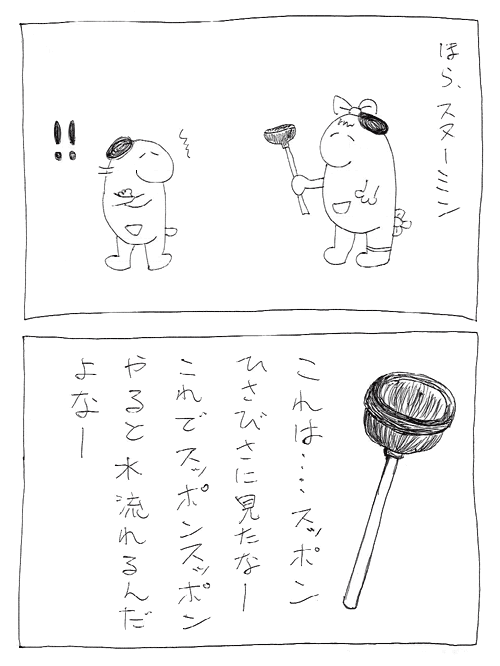 ほら、スヌーミン
!!
これは‥‥スッポン
ひさびさに見たなー
これでスッポンスッポン
やると水流れるんだ
よなー